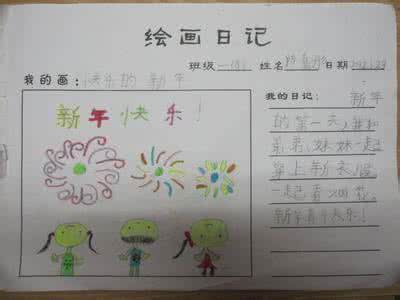 绘画日记
班级 一(6) 姓名 日期
我的画：快乐的 新年
新年快乐！
我的日记： 新年
的第一天，我和
弟弟、妹妹一起
穿上新衣
一起看
新年真快乐！